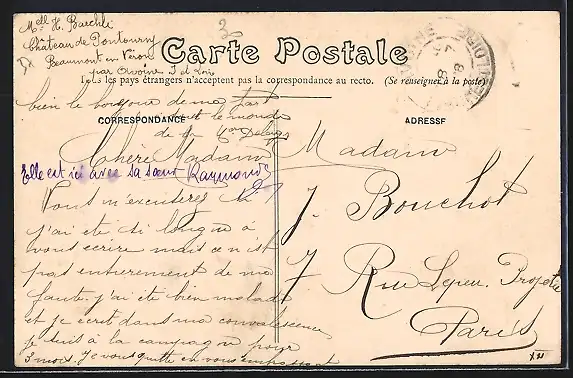 Mell H. Baechli
Château de Pontourny
Beaumont en Véron
par Avoine I et Loire
3
Carte Postale
Tous les pays étrangers n'acceptent pas la correspondance au recto. (Se renseigner à la poste)
bien le bonjour de ma part
à tout le monde
de la
CORRESPONDANCE
ADRESSE
Chère Madame
Elle est ici avec sa sœur Raymonde
Vous m'excuserez si
j'ai été si longue à
vous écrire mais ce n'est
pas entièrement de ma
faute. j'ai été bien malade
et je écrit dans ma convalescence
je suis à la campagne pour
3 mois. Je vous quitte en vous embrassant
Madame
J. Bouchot
7 Rue Lepeu. Projetée
Paris